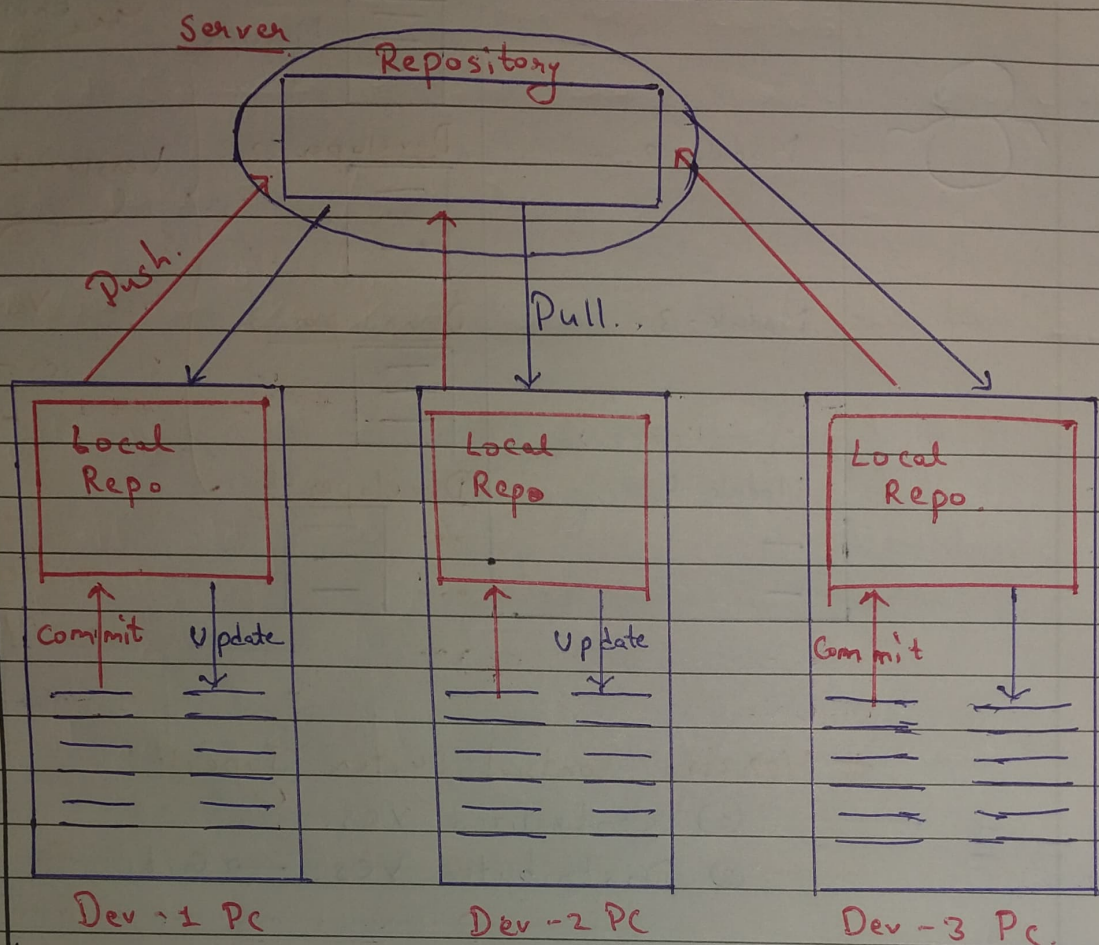 Server
Repository
Push.
Pull..
Local
Repo
Local
Repo
Local
Repo.
Commit
Update
Update
Commit
Dev-1 PC
Dev-2 PC
Dev-3 PC.